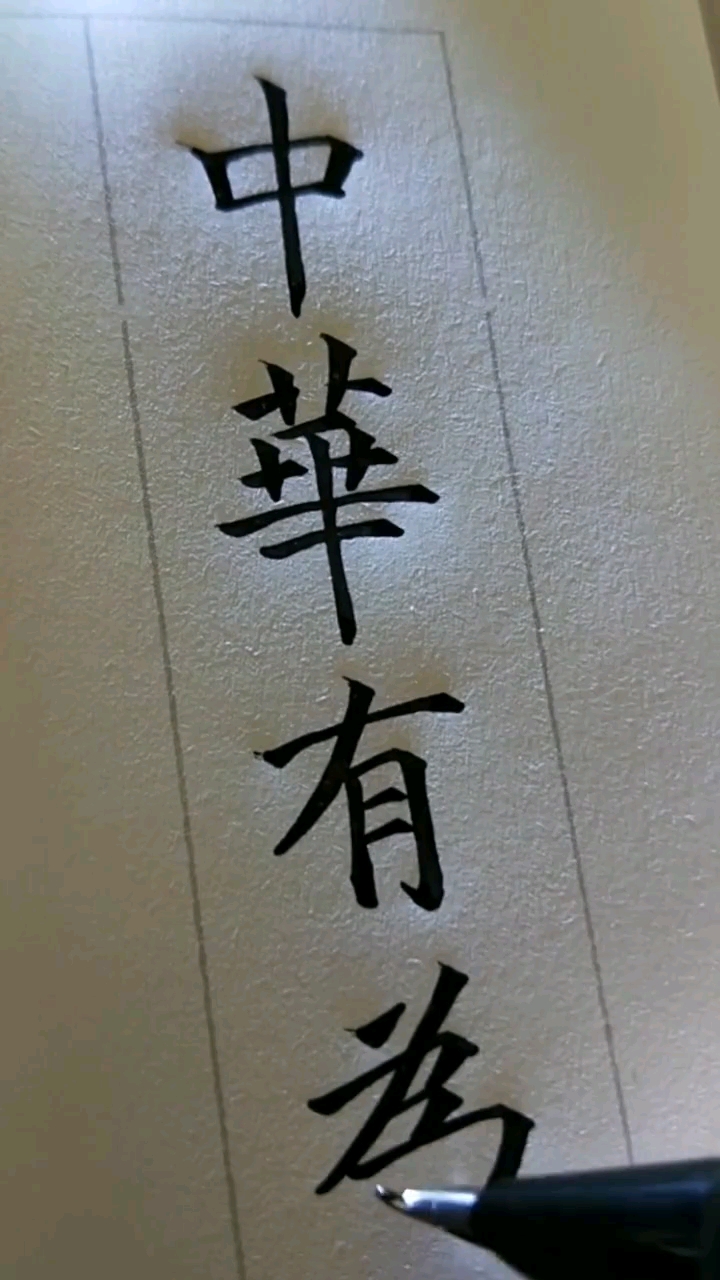 中華有為